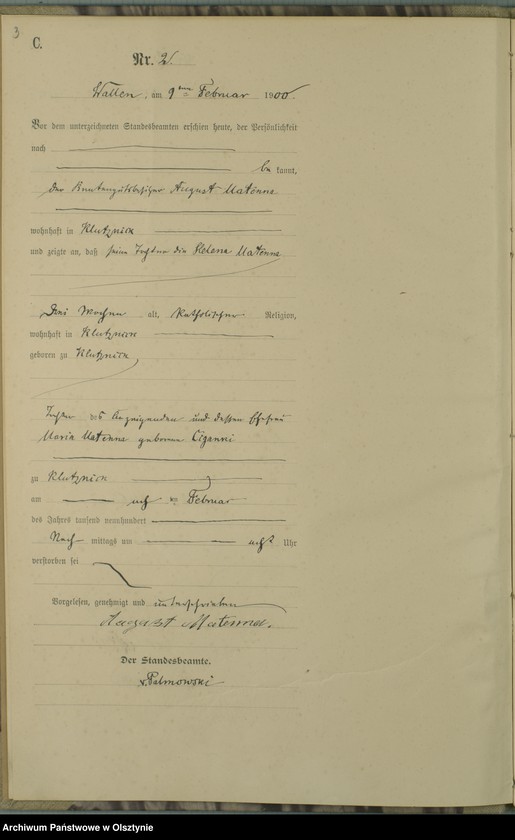 3
C.
Nr. 2.
Wallen, am 9ten Februar 1900
Vor dem unterzeichneten Standesbeamten erschien heute, der Persönlichkeit
nach
be kannt,
der Rentengutsbesitzer August Materne
wohnhaft in Klutznick
und zeigte an, daß seine Tochter die Helena Materne
Drei Wochen alt, katholischer Religion,
wohnhaft in Klutznick
geboren zu Klutznick
Tochter des Anzeigenden und dessen Ehefrau
Maria Materne geborene
zu Klutznick
am acht ten Februar
des Jahres tausend neunhundert
Nach mittags um acht Uhr
verstorben sei
Vorgelesen, genehmigt und unterschrieben
August Materna.
Der Standesbeamte.
v. Palmowski
Archiwum Państwowe w Olsztynie